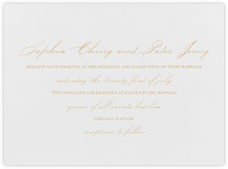 Sophia Cheng and Peter Jeong
REQUEST YOUR PRESENCE AT THE CEREMONY AND CELEBRATION OF THEIR MARRIAGE
saturday, the twenty first of july
TWO THOUSAND AND EIGHTEEN AT ELEVEN IN THE MORNING
queen of all saints basilica
CHICAGO, ILLINOIS
reception to follow